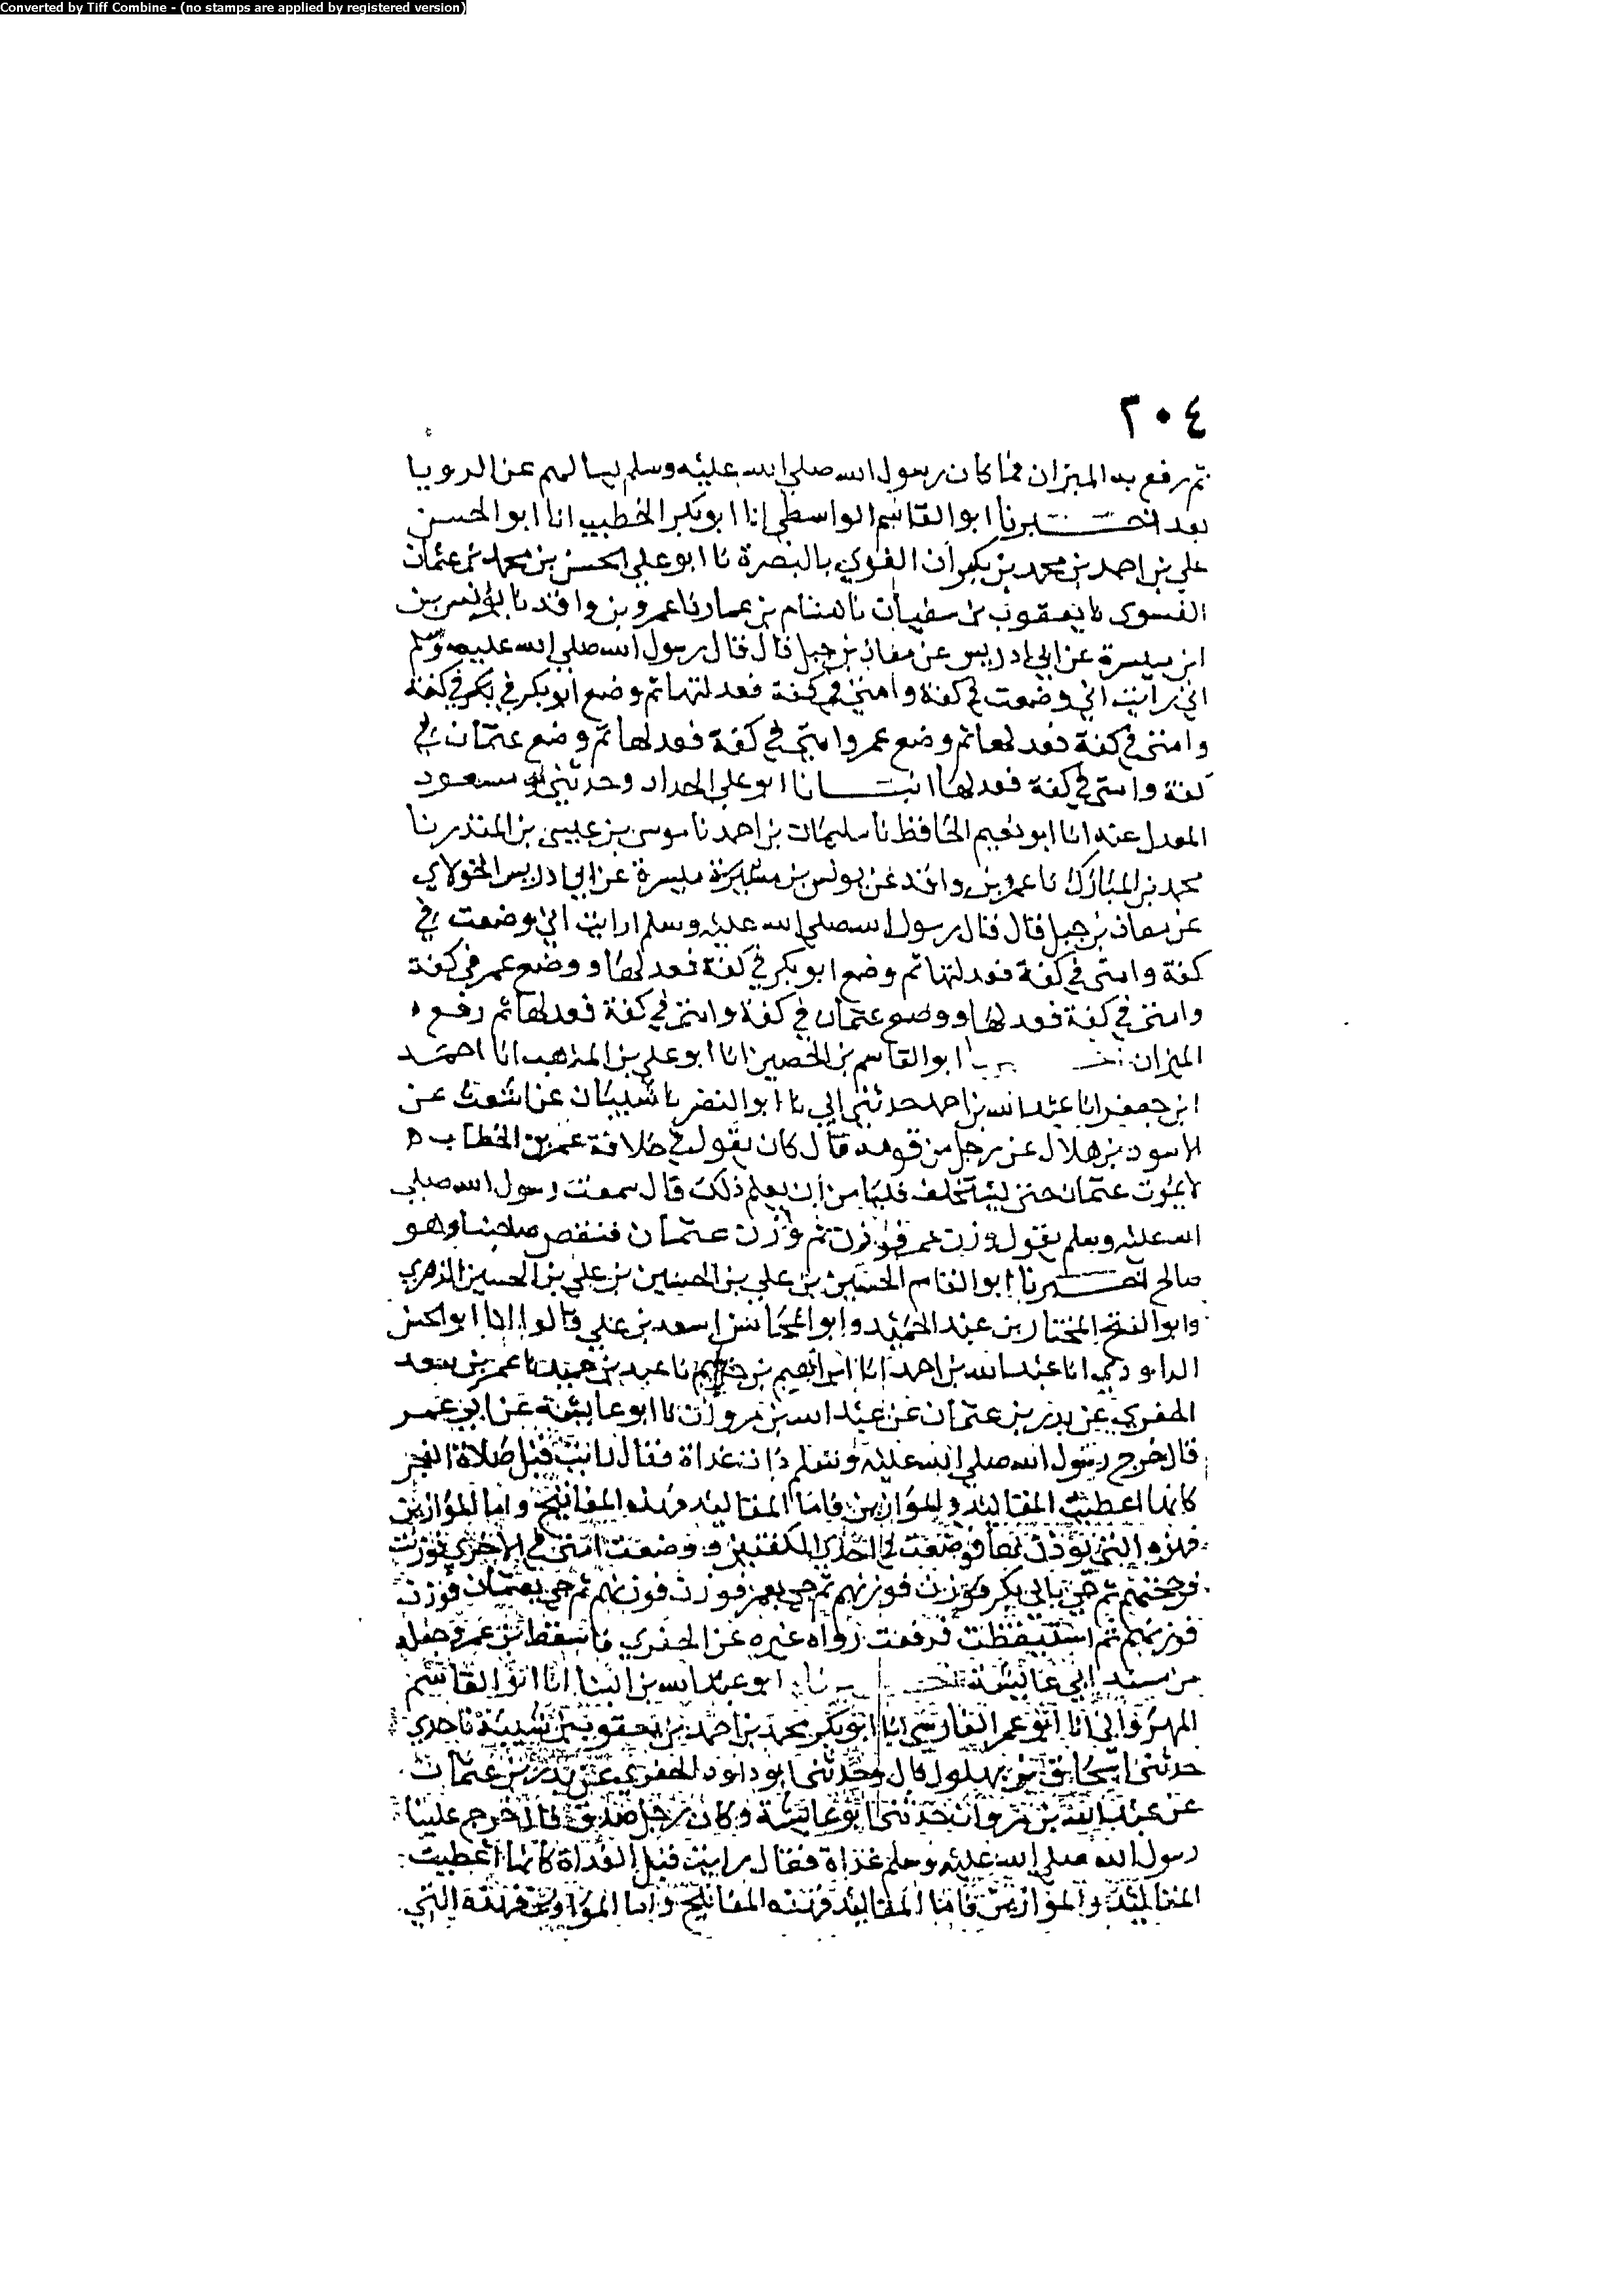 Converted by Tiff Combine - (no stamps are applied by registered version)
٢٠٤
ثم رفع به الميزان فما كان رسول الله صلى الله عليه وسلم يسالهم عن الرويا
بعد اخبرنا ابو القاسم الواسطي انا ابو بكر الخطيب انا ابو الحسن
علي بن احمد بن محمد بن بكران الفوي بالبصرة نا ابو علي الحسن بن محمد بن عثمان
الفسوى نا يعقوب بن سفيان نا هشام بن عمار نا عمرو بن واقد نا يونس بن
ابن ميسرة عن ابي ادريس عن معاذ بن جبل قال قال رسول الله صلى الله عليه وسلم
اني رايت اني وضعت في كفة وامتي في كفة فعدلتها ثم وضع ابو بكر في كفة
وامتي في كفة فعدلها ثم وضع عمر وامتي في كفة فعدلها ثم وضع عثمان في
كفة وامتي في كفة فعدلها انبانا ابو علي الحداد وحدثني ابو مسعود
المعدل عنه انا ابو نعيم الحافظ نا سليمان بن احمد نا موسى بن عيسى بن المنذر نا
محمد بن المبارك نا عمرو بن واقد عن يونس بن ميسرة عن ابي ادريس الخولاي
عن معاذ بن جبل قال قال رسول الله صلى الله عليه وسلم ارايت اني وضعت في
كفة وامتي في كفة فعدلتها ثم وضع ابو بكر في كفة فعدلها ووضع عمر في كفة
وامتي في كفة فعدلها ووضع عثمان في كفة وامتي في كفة فعدلها ثم رفع
الميزان ابو القاسم بن الحصين انا ابو علي بن المذهب انا احمد
ابن جعفر انا عبد الله بن احمد حدثني ابي نا ابو النضر نا شيبان عن اشعث عن
الاسود بن هلال عن رجل من قومه قال كان يقول في خلافة عمر بن الخطاب
لا يموت عثمان حتى يستخلف قلنا من اين يعلم ذلك قال سمعت رسول الله صلى
الله عليه وسلم يقول وزن عمر فوزن ثم وزن عثمان فنقص صاحبنا وهو
صالح اخبرنا ابو القاسم الحسين بن علي بن الحسين بن علي بن الحسين الزهري
وابو الفتح المختار بن عبد الحميد وابو المحاسن اسعد بن علي قالوا انا ابو الحسن
الداودي انا عبد الله بن احمد انا ابراهيم بن خزيم نا عبد بن حميد نا عمر بن سعد
الحفري عن بدر بن عثمان عن عبيد الله بن مروان نا ابو عايشة عن ابن عمر
قال خرج رسول الله صلى الله عليه وسلم ذات غداة فقال رايت قبل صلاة الفجر
كانما اعطيت المقاليد والموازين فاما المقاليد فهذه المفاتيح واما الموازين
فهذه التي توزن بها فوضعت في احدى الكفتين ووضعت امتي في الاخرى فوزنت
فرجحتهم ثم جي بابي بكر فوزن فوزنهم ثم جي بعمر فوزن فوزنهم ثم جي بعثمان فوزن
فوزنهم ثم استيقظت فرفعت رواه غيره عن الحفري فاسقط ابن عمر وجعله
من مسند ابي عايشة ابو عبد الله بن البنا انا ابو القاسم
المهرواني انا ابو عمر الفارسي انا ابو بكر محمد بن احمد بن يعقوب بن شيبة نا جدي
حدثنا اسحاق بن بهلول قال وحدثني ابو داود الحفري عن بدر بن عثمان
عن عبيد الله بن مروان حدثني ابو عايشة وكان رجل صدق قال خرج علينا
رسول الله صلى الله عليه وسلم غداة فقال رايت قبل الغداة كانما اعطيت
المقاليد والموازين فاما المقاليد فهذه المفاتيح واما الموازين فهذه التي